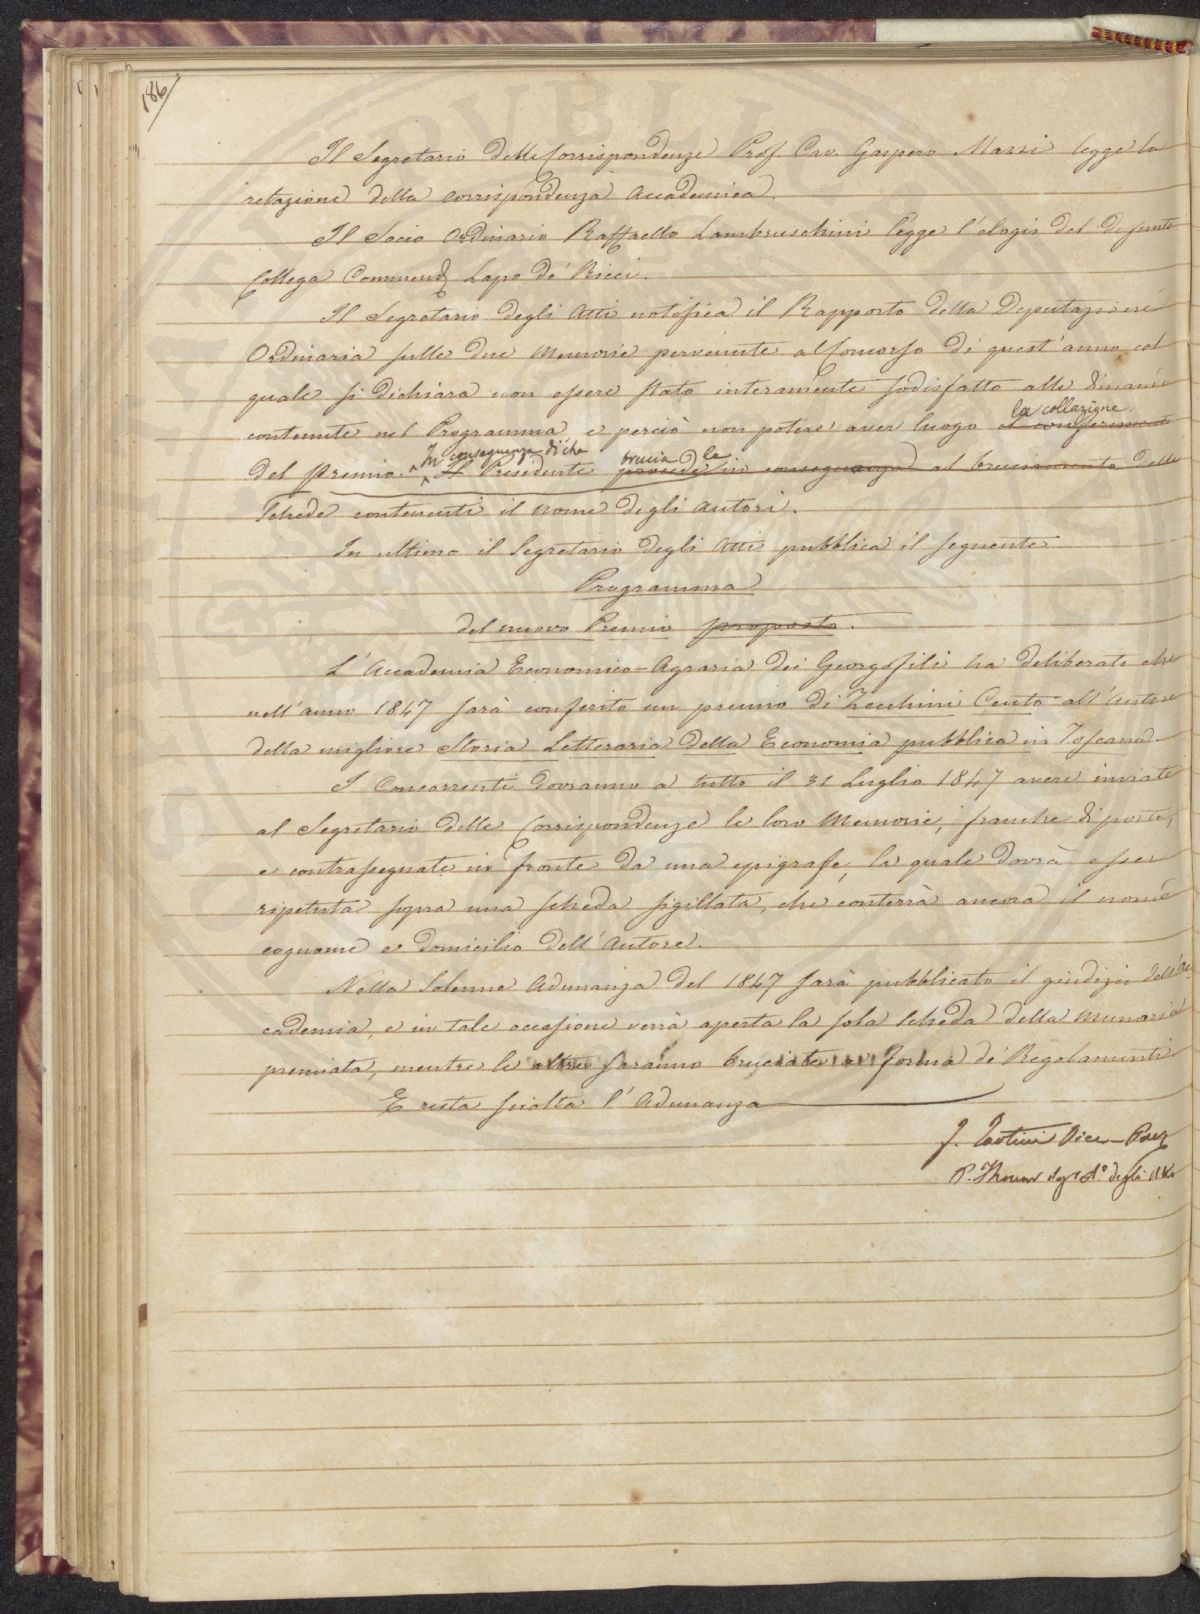 186
Il Segretario delle Corrispondenze Prof. Cav. Gaspero Mazzi legge la
relazione della corrispondenza Accademica.
Il Socio Ordinario Raffaello Lambruschini legge l'elogio del defunto
Collega Commend. Lapo de' Ricci.
Il Segretario degli Atti notifica il Rapporto della Deputazione
Ordinaria sulle due Memorie pervenute al Concorso di quest'anno col
quale si dichiara non essere stato interamente sodisfatto alle dimande
la collazione.
contenute nel Programma e perciò non potere aver luogo il conferimento
In conseguenza di che brucia le
del premio. Il Presidente procede in conseguenza al bruciamento delle
Schede contenenti il nome degli autori.
In ultimo il Segretario degli Atti pubblica il seguente
Programma
del nuovo Premio proposto.
L'Accademia Economico-Agraria dei Georgofili ha deliberato che
nell'anno 1847 sarà conferito un premio di Zecchini Cento all'Autore
della migliore Storia Letteraria della Economia pubblica in Toscana.
I Concorrenti dovranno a tutto il 31 Luglio 1847 avere inviate
al Segretario delle Corrispondenze le loro Memorie, franche di porto,
e contrasegnate in fronte da una epigrafe, la quale dovrà esser
ripetuta sopra una scheda sigillata, che conterrà ancora il nome
cognome e domicilio dell'Autore.
Nella Solenne Adunanza del 1847 sarà pubblicato il giudizio dell'Ac-
cademia, e in tale occasione verrà aperta la sola Scheda della Memoria
premiata, mentre le altre saranno bruciate in forma de' Regolamenti.
E resta sciolta l'Adunanza
J. Tartini Vice-Prez
P. Thouar Segret.° degli Atti